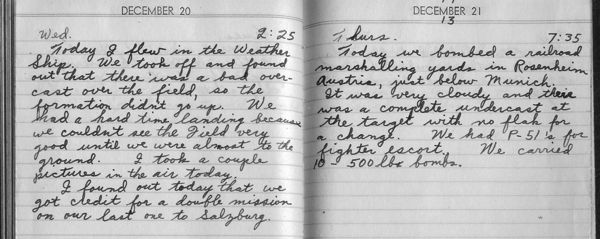 DECEMBER 20
Wed. 2:25
Today I flew in the Weather
Ship. We took off and found
out that there was a bad over-
cast over the field, so the
formation didn't go up. We
had a hard time landing because
we couldn't see the Field very
good until we were almost to the
ground. I took a couple
pictures in the air today.
I found out today that we
got credit for a double mission
on our last one to Salzburg.
DECEMBER 21
13
Thurs. 7:35
Today we bombed a railroad
marshalling yards in Rosenheim
Austria, just below Munich.
It was very cloudy and there
was a complete undercast at
the target with no flak for
a change. We had P-51's for
fighter escort. We carried
10 - 500 lbs bombs.